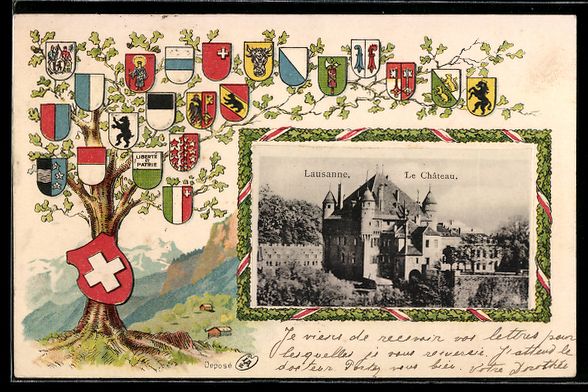 LIBERTÉ
ET
PATRIE
Lausanne. Le Château.
Deposé
Je viens de recevoir vos lettres pour
lesquelles je vous remercie. J'attend le
votre